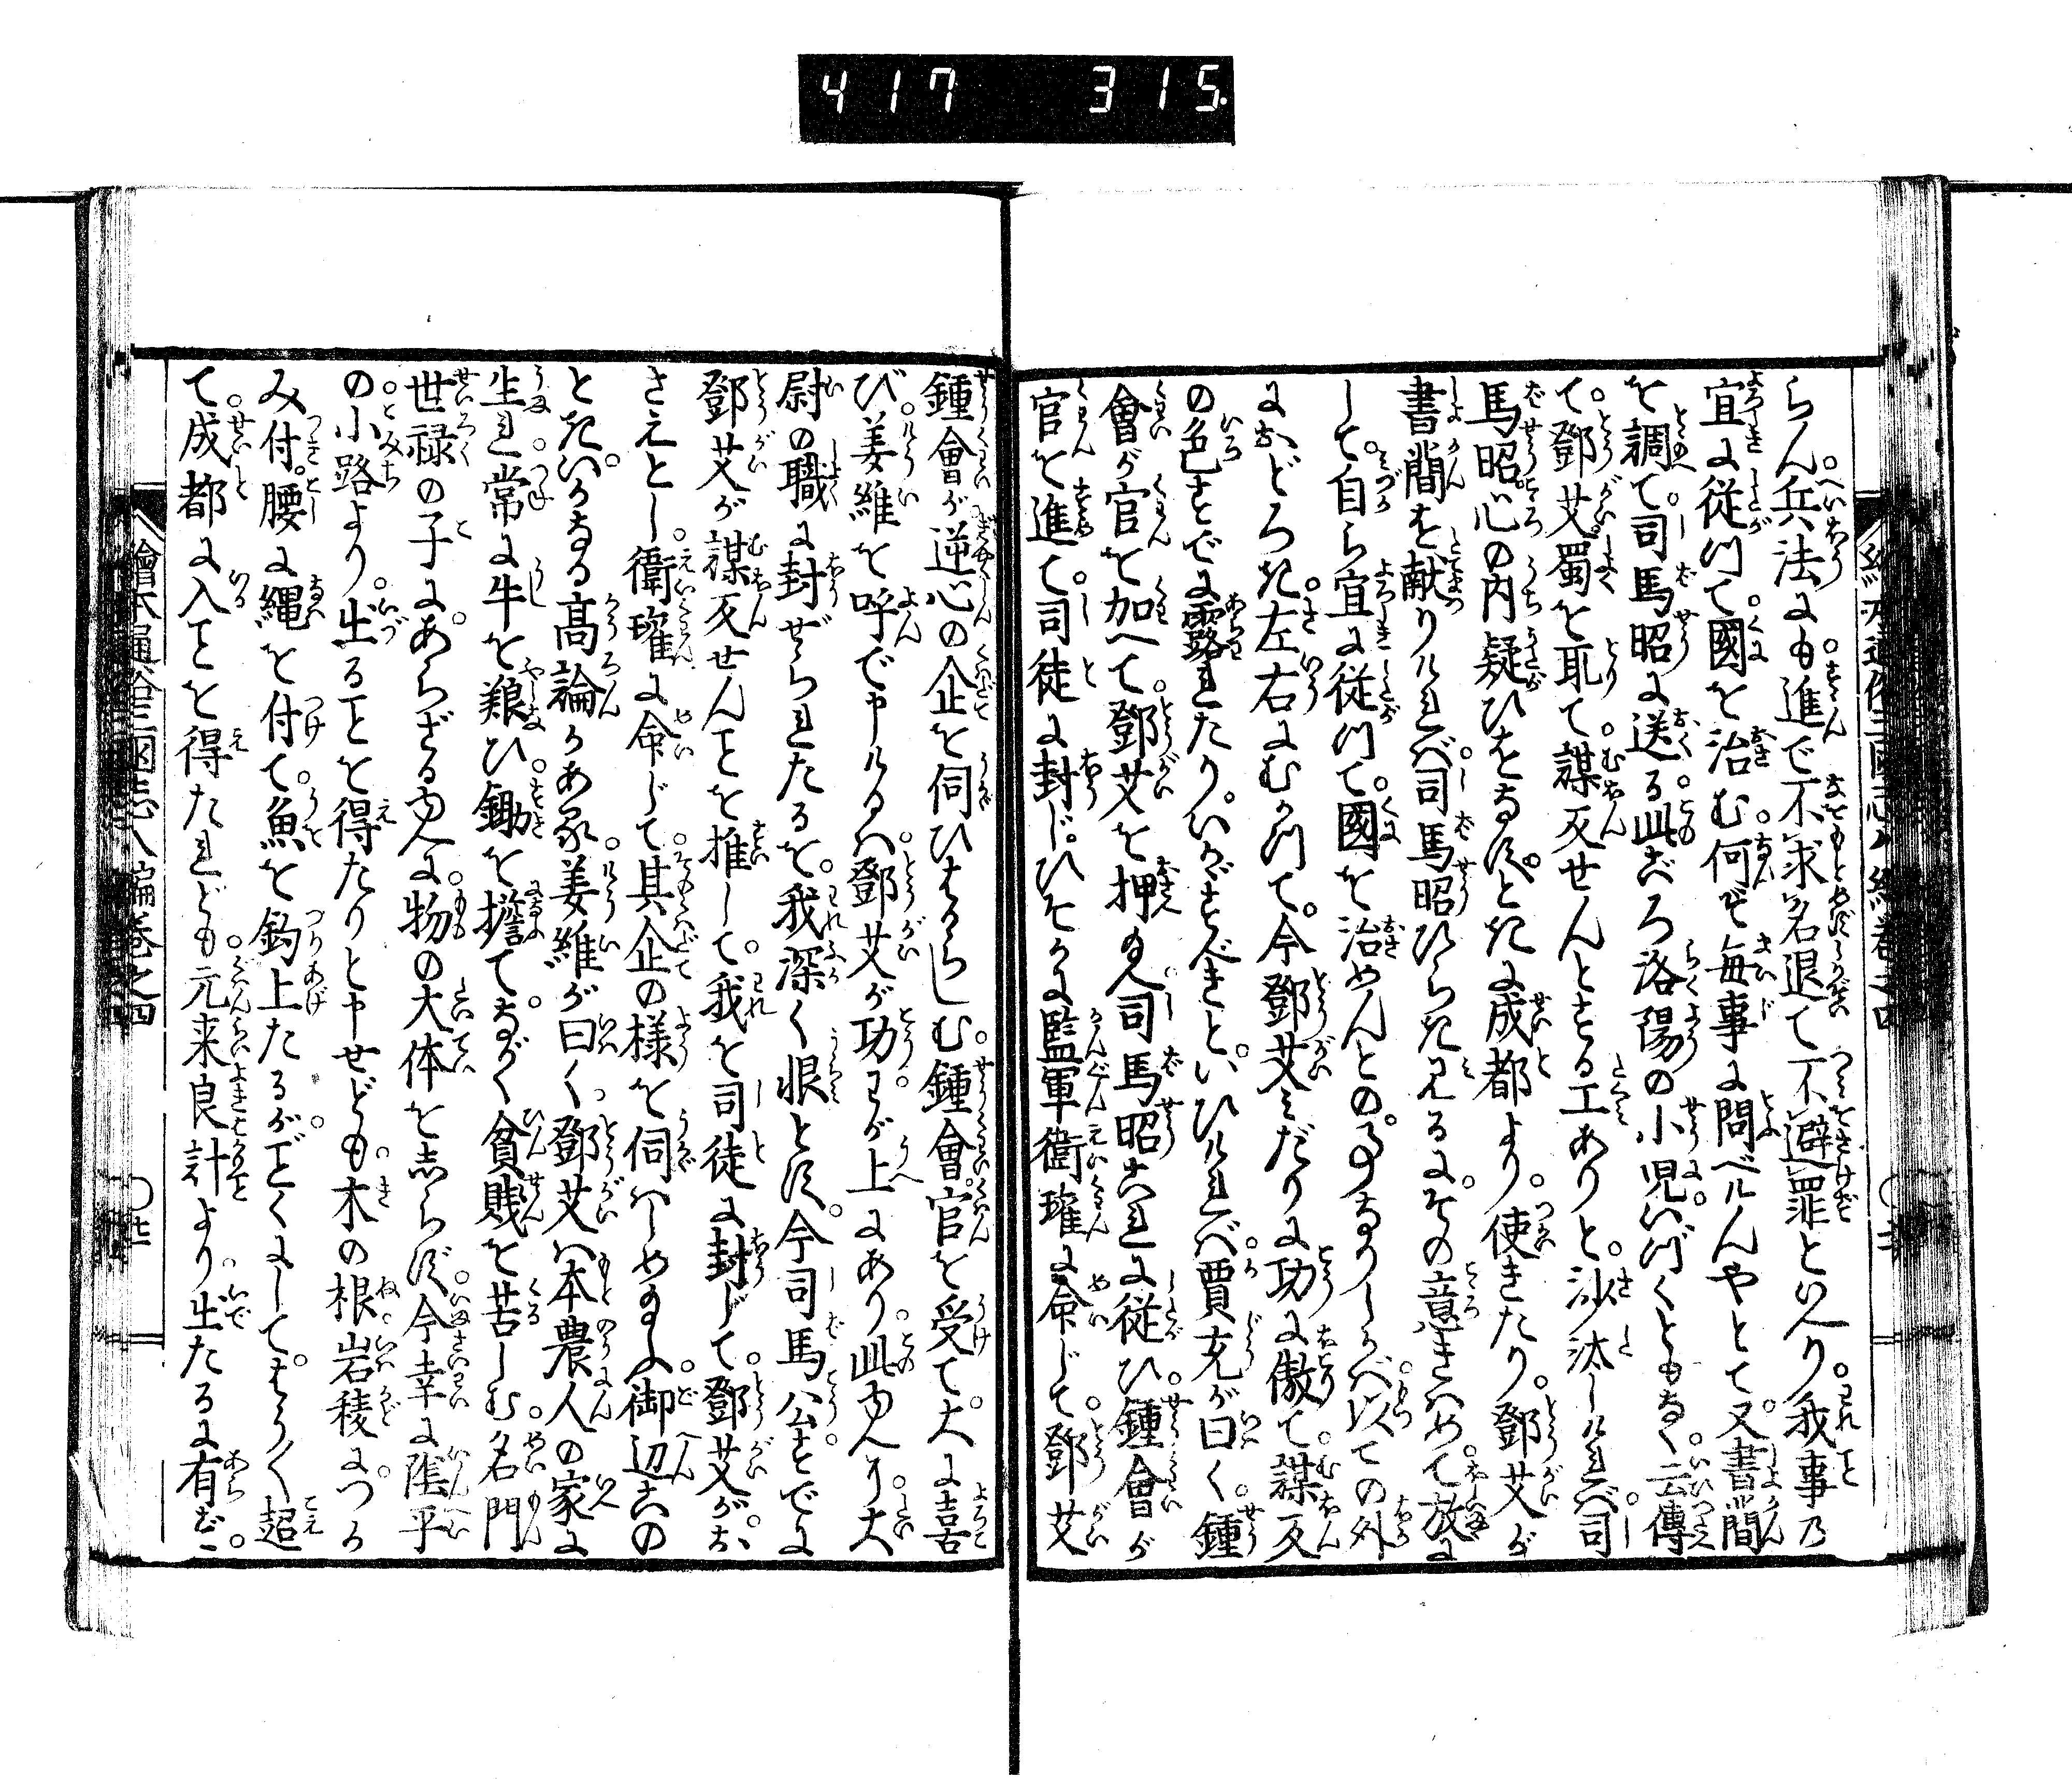 417 315.
らん。兵法にも。進で不求名退て不避罪といへり。我事乃
宜に従つて。國を治む。何ぞ毎事に問べけんやとて。又書簡
を調て。司馬昭に送る。此ごろ洛陽の小児。いづくともなく。云傳
て。鄧艾。蜀を取て。謀反せんとする工ありと。沙汰しければ。司
馬昭。心の内疑ひをなす。ときに成都より。使きたり。鄧艾が
書簡を献りければ。司馬昭ひらき見るに。その意きはめて。放に
して。自ら宜に従つて。國を治めんとの。事なりしかば。以ての外
におどろき。左右にむかつて。今鄧艾みだりに功に傲て。謀反
の色すでに露れたり。いかゞすべきと。いひければ。賈充が曰く。鍾
會が官を加へて。鄧艾を押へ給へ。司馬昭これに従ひ。鍾會が
官を進て。司徒に封じ。ひそかに監軍衛瓘に命じて。鄧艾
鍾會が逆心の企を伺ひはからしむ。鍾會。官を受て。大に喜
び。姜維を呼で申けるは。鄧艾が功。わが上にあり。此ゆへに。大
尉の職に封ぜられたるを。我深く恨とす。今司馬公すでに
鄧艾が謀反せんことを推して。我を司徒に封じて。鄧艾がお
さえとし。衛瓘に命じて。其企の様を伺はしめ給ふ。御辺この
とき。いかなる高論かある。姜維が曰く。鄧艾は本農人の家に
生れ。常に牛を養ひ。鋤を擔て。ながく貧賤を苦しむ。名門
世禄の子に。あらざるゆへに。物の大体をしらず。今幸に陰平
の小路より。出ることを得たりと申せども。木の根。岩稜に。つか
み付。腰に縄を付て。魚を釣上たるがごとくにして。はるく超
て。成都に入ことを得たれども。元来良計より。出たるに有ず。
繪本通俗三國志八編巻之四